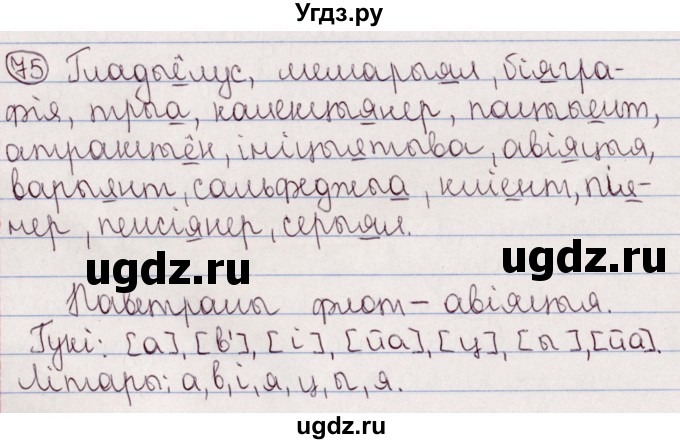 Угдз.ру
75 Гладыёлус, мемарыял, біягра-
фія, трыа, калекцыянер, пацыент,
атракцыён, ініцыятыва, авіяцыя,
варыянт, сальфеджыа, кліент, пія-
нер, пенсіянер, серыял.
ugdz.ru ugdz.ru
Паветраны флот – авіяцыя.
Гукі: [а], [в'], [і], [йа], [ц], [ы], [йа].
Літары: а, в, і, я, ц, ы, я.
ugdz.ru